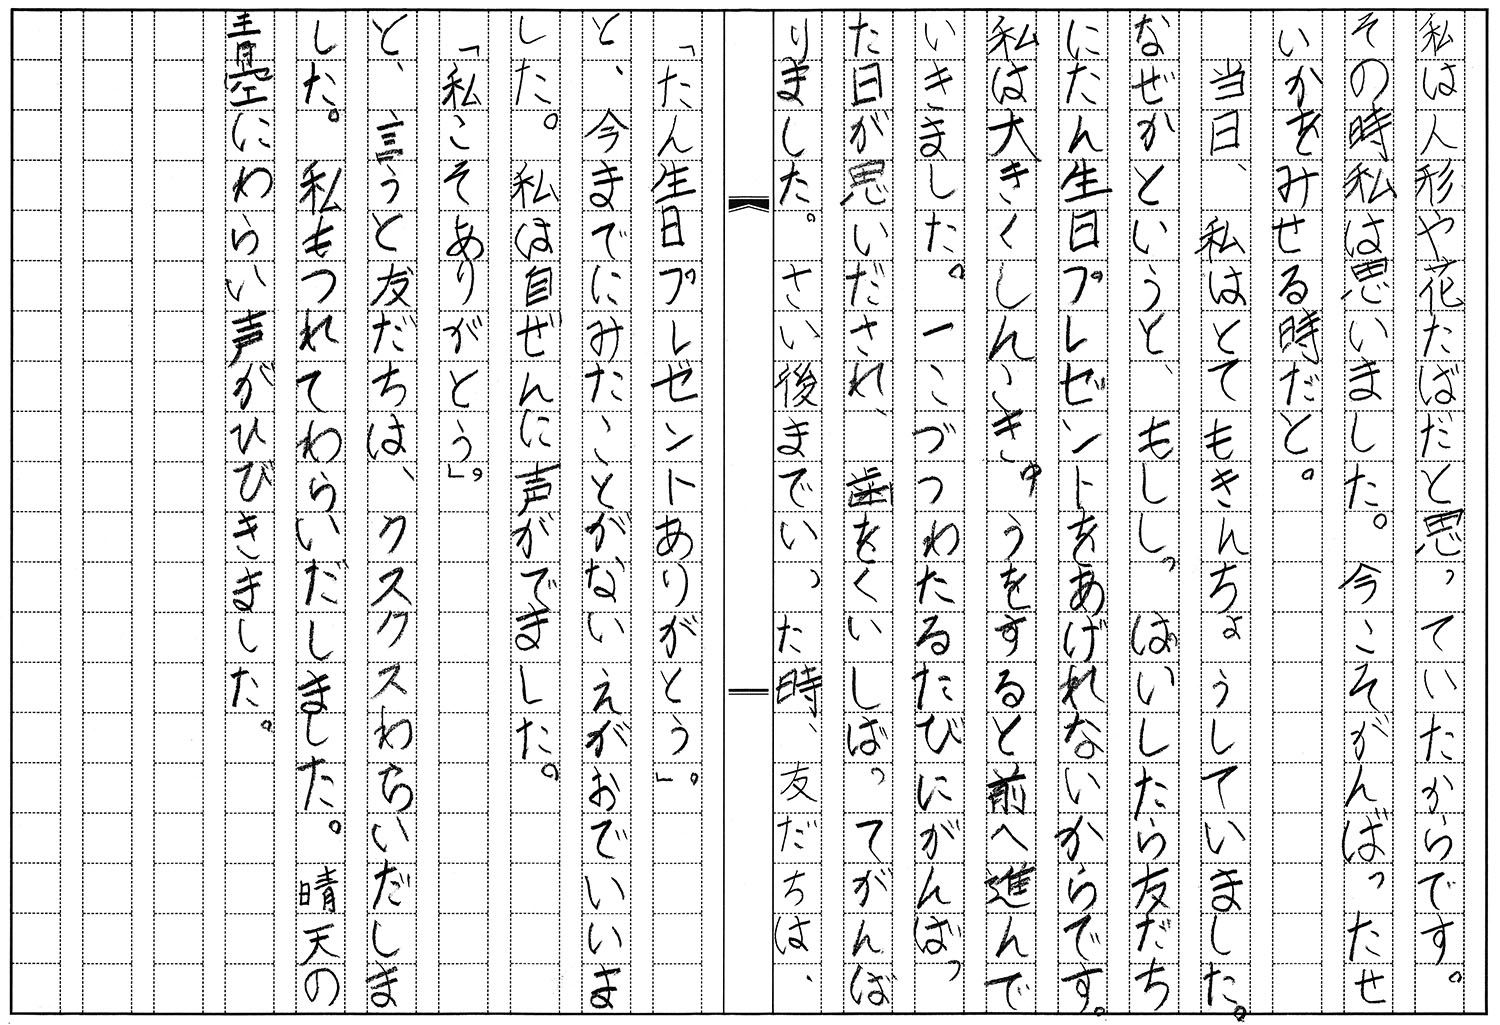 私は人形や花たばだと思っていたからです。
その時私は思いました。今こそがんばったせ
いかをみせる時だと。
当日、私はとてもきんちょうしていました。
なぜかというと、もししっぱいしたら友だち
にたん生日プレゼントをあげれないからです。
私は大きくしんこき。゙うをすると前へ進んで
いきました。一こづつわたるたびにがんばっ
た日が思いだされ、歯をくいしばってがんば
りました。さい後までいった時、友だちは、
「たん生日プレゼントありがとう」。
と、今までにみたことがないえがおでいいま
した。私は自ぜんに声がでました。
「私こそありがとう」。
と、言うと友だちは、クスクスわらいだしま
した。私もつれてわらいだしました。晴天の
青空にわらい声がひびきました。